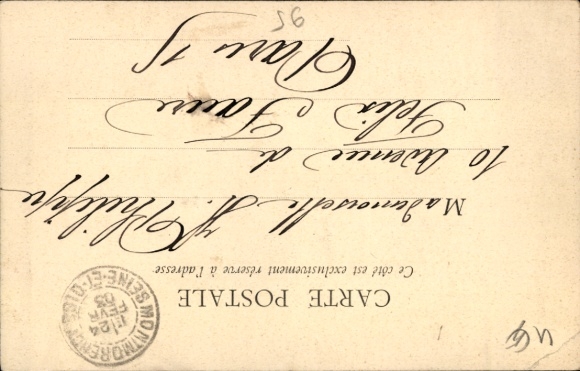 CARTE POSTALE
Ce côté est exclusivement réservé à l'adresse
Mademoiselle Philippe
10 Avenue de
Felix Faure
Paris 15
MONTMORENCY SEINE-ET-OISE
24
FEVR
03
95